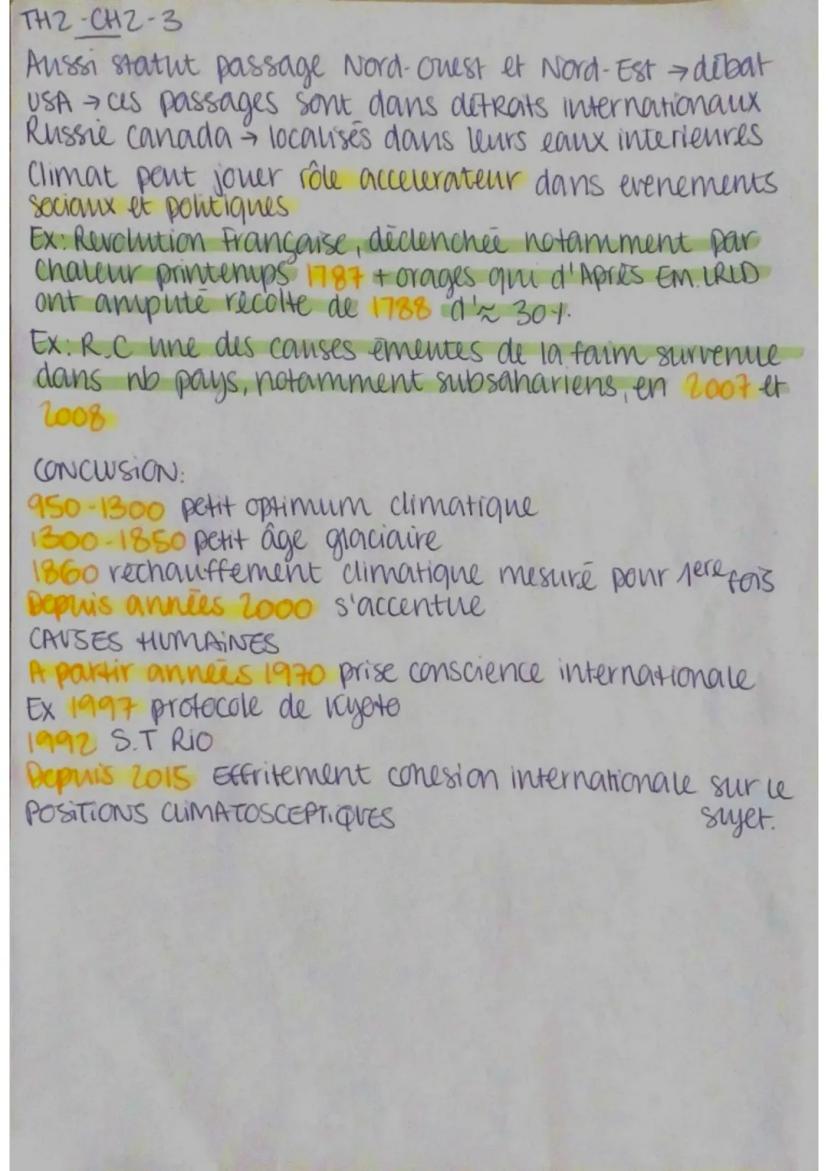 TH2-CH2-3
Aussi statut passage Nord-Ouest et Nord-Est → débat
USA → ces passages sont dans détrats internationaux
Russie Canada → localisés dans leurs eaux interieures
Climat peut jouer rôle accelerateur dans evenements
sociaux et politiques
Ex: Revolution Française, déclenchée notamment par
chaleur printemps 1787 + orages qui d'Après EM. LRLD
ont amputé récolte de 1788 d'≈ 30%.
Ex: R.C une des causes émeutes de la faim survenue
dans nb pays, notamment subsahariens, en 2007 et
2008
CONCLUSION:
950-1300 petit optimum climatique
1300-1850 petit âge glaciaire
1860 rechauffement climatique mesuré pour 1ere fois
Depuis années 2000 s'accentue
CAUSES HUMAINES
A partir années 1970 prise conscience internationale
Ex 1997 protocole de Kyoto
1992 S.T RIO
Depuis 2015 Effritement cohesion internationale sur le
sujet.
POSITIONS CLIMATOSCEPTIQUES